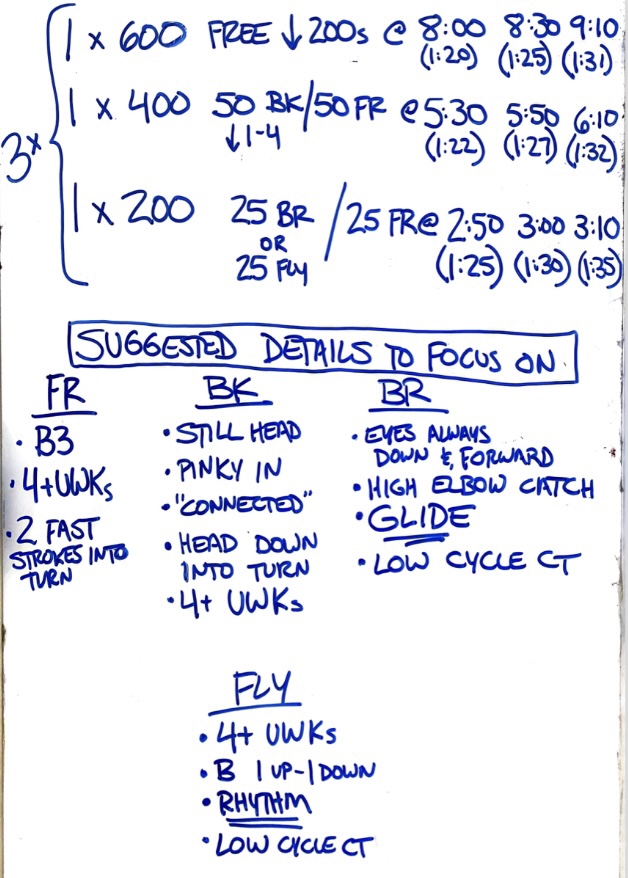 1 x 600 FREE ↓200s @ 8:00 8:30 9:10
(1:20) (1:25) (1:31)
3x
1 x 400 50 BK/50 FR @ 5:30 5:50 6:10
↓1-4 (1:22) (1:27) (1:32)
1 x 200 25 BR / 25 FR @ 2:50 3:00 3:10
OR
25 FLY (1:25) (1:30) (1:35)
SUGGESTED DETAILS TO FOCUS ON
FR
• B3
• 4+UWKs
• 2 FAST
STROKES INTO
TURN
BK
• STILL HEAD
• PINKY IN
• "CONNECTED"
• HEAD DOWN
INTO TURN
• 4+ UWKs
BR
• EYES ALWAYS
DOWN & FORWARD
• HIGH ELBOW CATCH
• GLIDE
• LOW CYCLE CT
FLY
• 4+ UWKs
• B 1 UP-1 DOWN
• RHYTHM
• LOW CYCLE CT